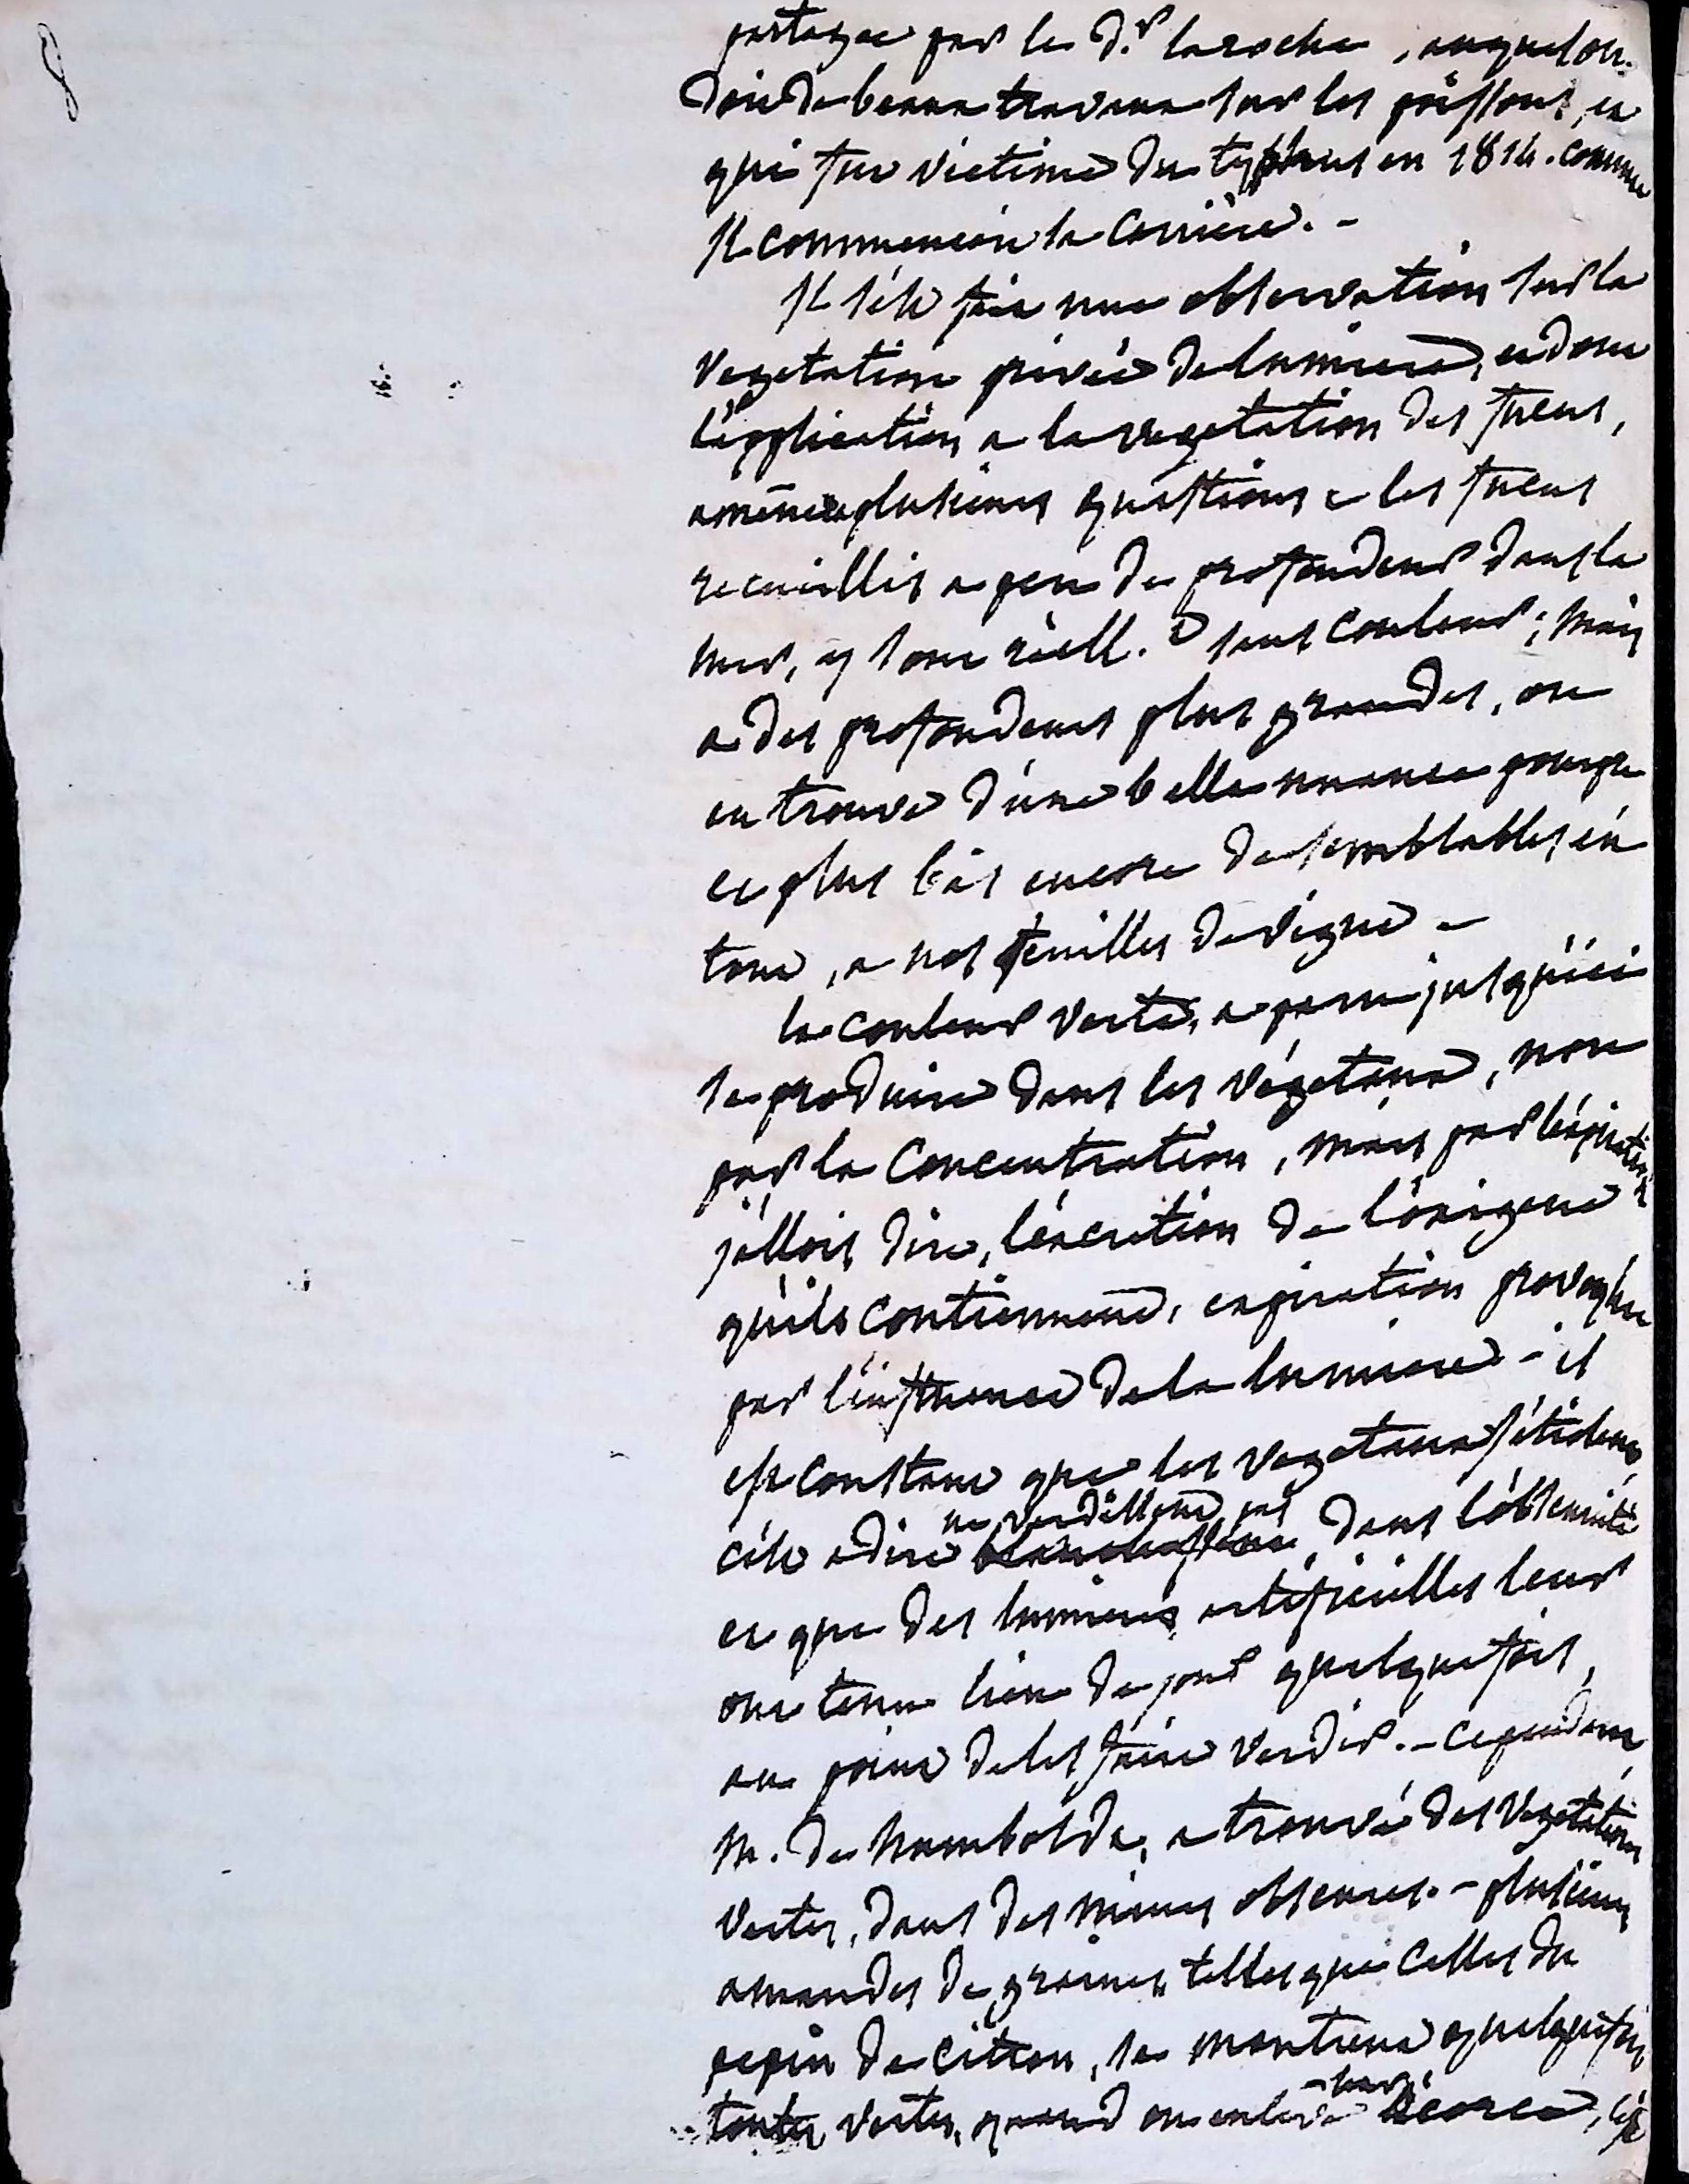 8
partagee par le d.r laroche, auquel on
doit de beaux travaux sur les poissons, et
qui fut victime du typhus en 1814. comme
il commençoit la carriere. -
il s'est fait une observation sur la
vegetation privée de lumiere, et dont
l'application a la vegetation des fucus,
amene plusieurs questions - les fucus
recueillis a peu de profondeur dans la
mer, y sont réell.t sans couleur; mais
a des profondeurs plus grandes, on
en trouve d'une belle nuance pourpre
et plus bas encore de semblables, en
tout, a nos feuilles de vigne -
la couleur verte, a paru jusqu'ici
se produire dans les végétaux, non
par la concentration, mais par l'expiration
j'allois dire, l'excretion de l'oxigene
qu'ils contiennent, expiration provoquée
par l'influence de la lumiere - il
est constant que les vegetaux s'étiolent,
c'est a dire ne verdissent pas dans l'obscurité
et que des lumieres artificielles leur
ont tenu lieu de jour quelquefois,
au point de les faire verdir. - cependant,
m. de humboldt, a trouvé des vegetations
vertes, dans des mines obscures. - plusieurs
amandes de graines, telles que celles du
pepin de citron, se montrent quelquefois
toutes vertes, quand on enleve leur écorce, c'est